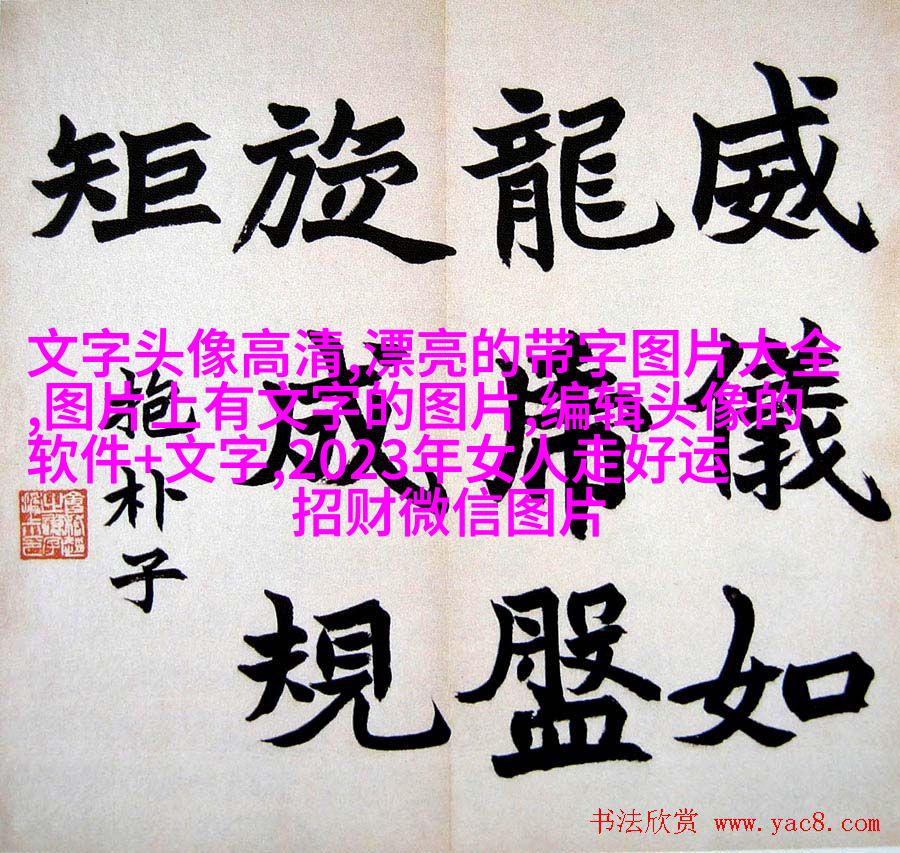 威儀如
龍盤
旋成規
矩
抱朴子
文字头像高清,漂亮的带字图片大全
,图片上有文字的图片,编辑头像的
软件+文字,2023年女人走好运
招财微信图片
书法欣赏 www.yac8.com